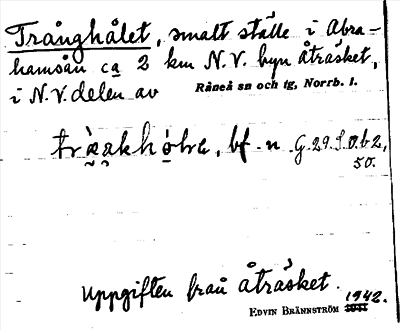 Trånghålet, smalt ställe i Abra-
hamsån ca 2 km N.V. byn Åträsket,
i N.V. delen av Råneå sn och tg, Norrb. l.
bf. n. G.29.S.a.b2,
50.
Uppgiften från Åträsket.
EDVIN BRÄNNSTRÖM 1942.